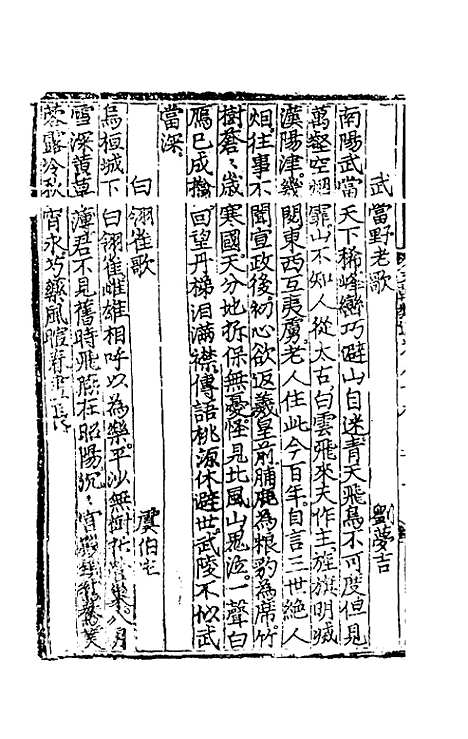 武當野老歌 劉夢吉
南陽武當天下稀峰巒巧避山自迷青天飛鳥不可度但見
萬壑空烟霏山不知人從太古白雲飛來天作主旌旗明滅
漢陽津幾關東西互夷虜老人住此今百年自言三世絕人
烟往事不聞宣政後初心欲返羲皇前脯鹿為粮豹為席竹
樹蒼〻歲寒國天分地拆保無憂怪見北風山鬼泣一聲白
鴈已成擒回望丹梯泪滿襟傳語桃源休避世武陵不似武
當深
白翎雀歌 虞伯生
烏桓城下白翎雀雌雄相呼以為樂平沙無樹託營巢八月
雪深黄草薄君不見舊時飛燕在昭陽沉〻宫殿鎖鴛鴦芙
蓉露冷秋宵永芍藥風暄春晝長